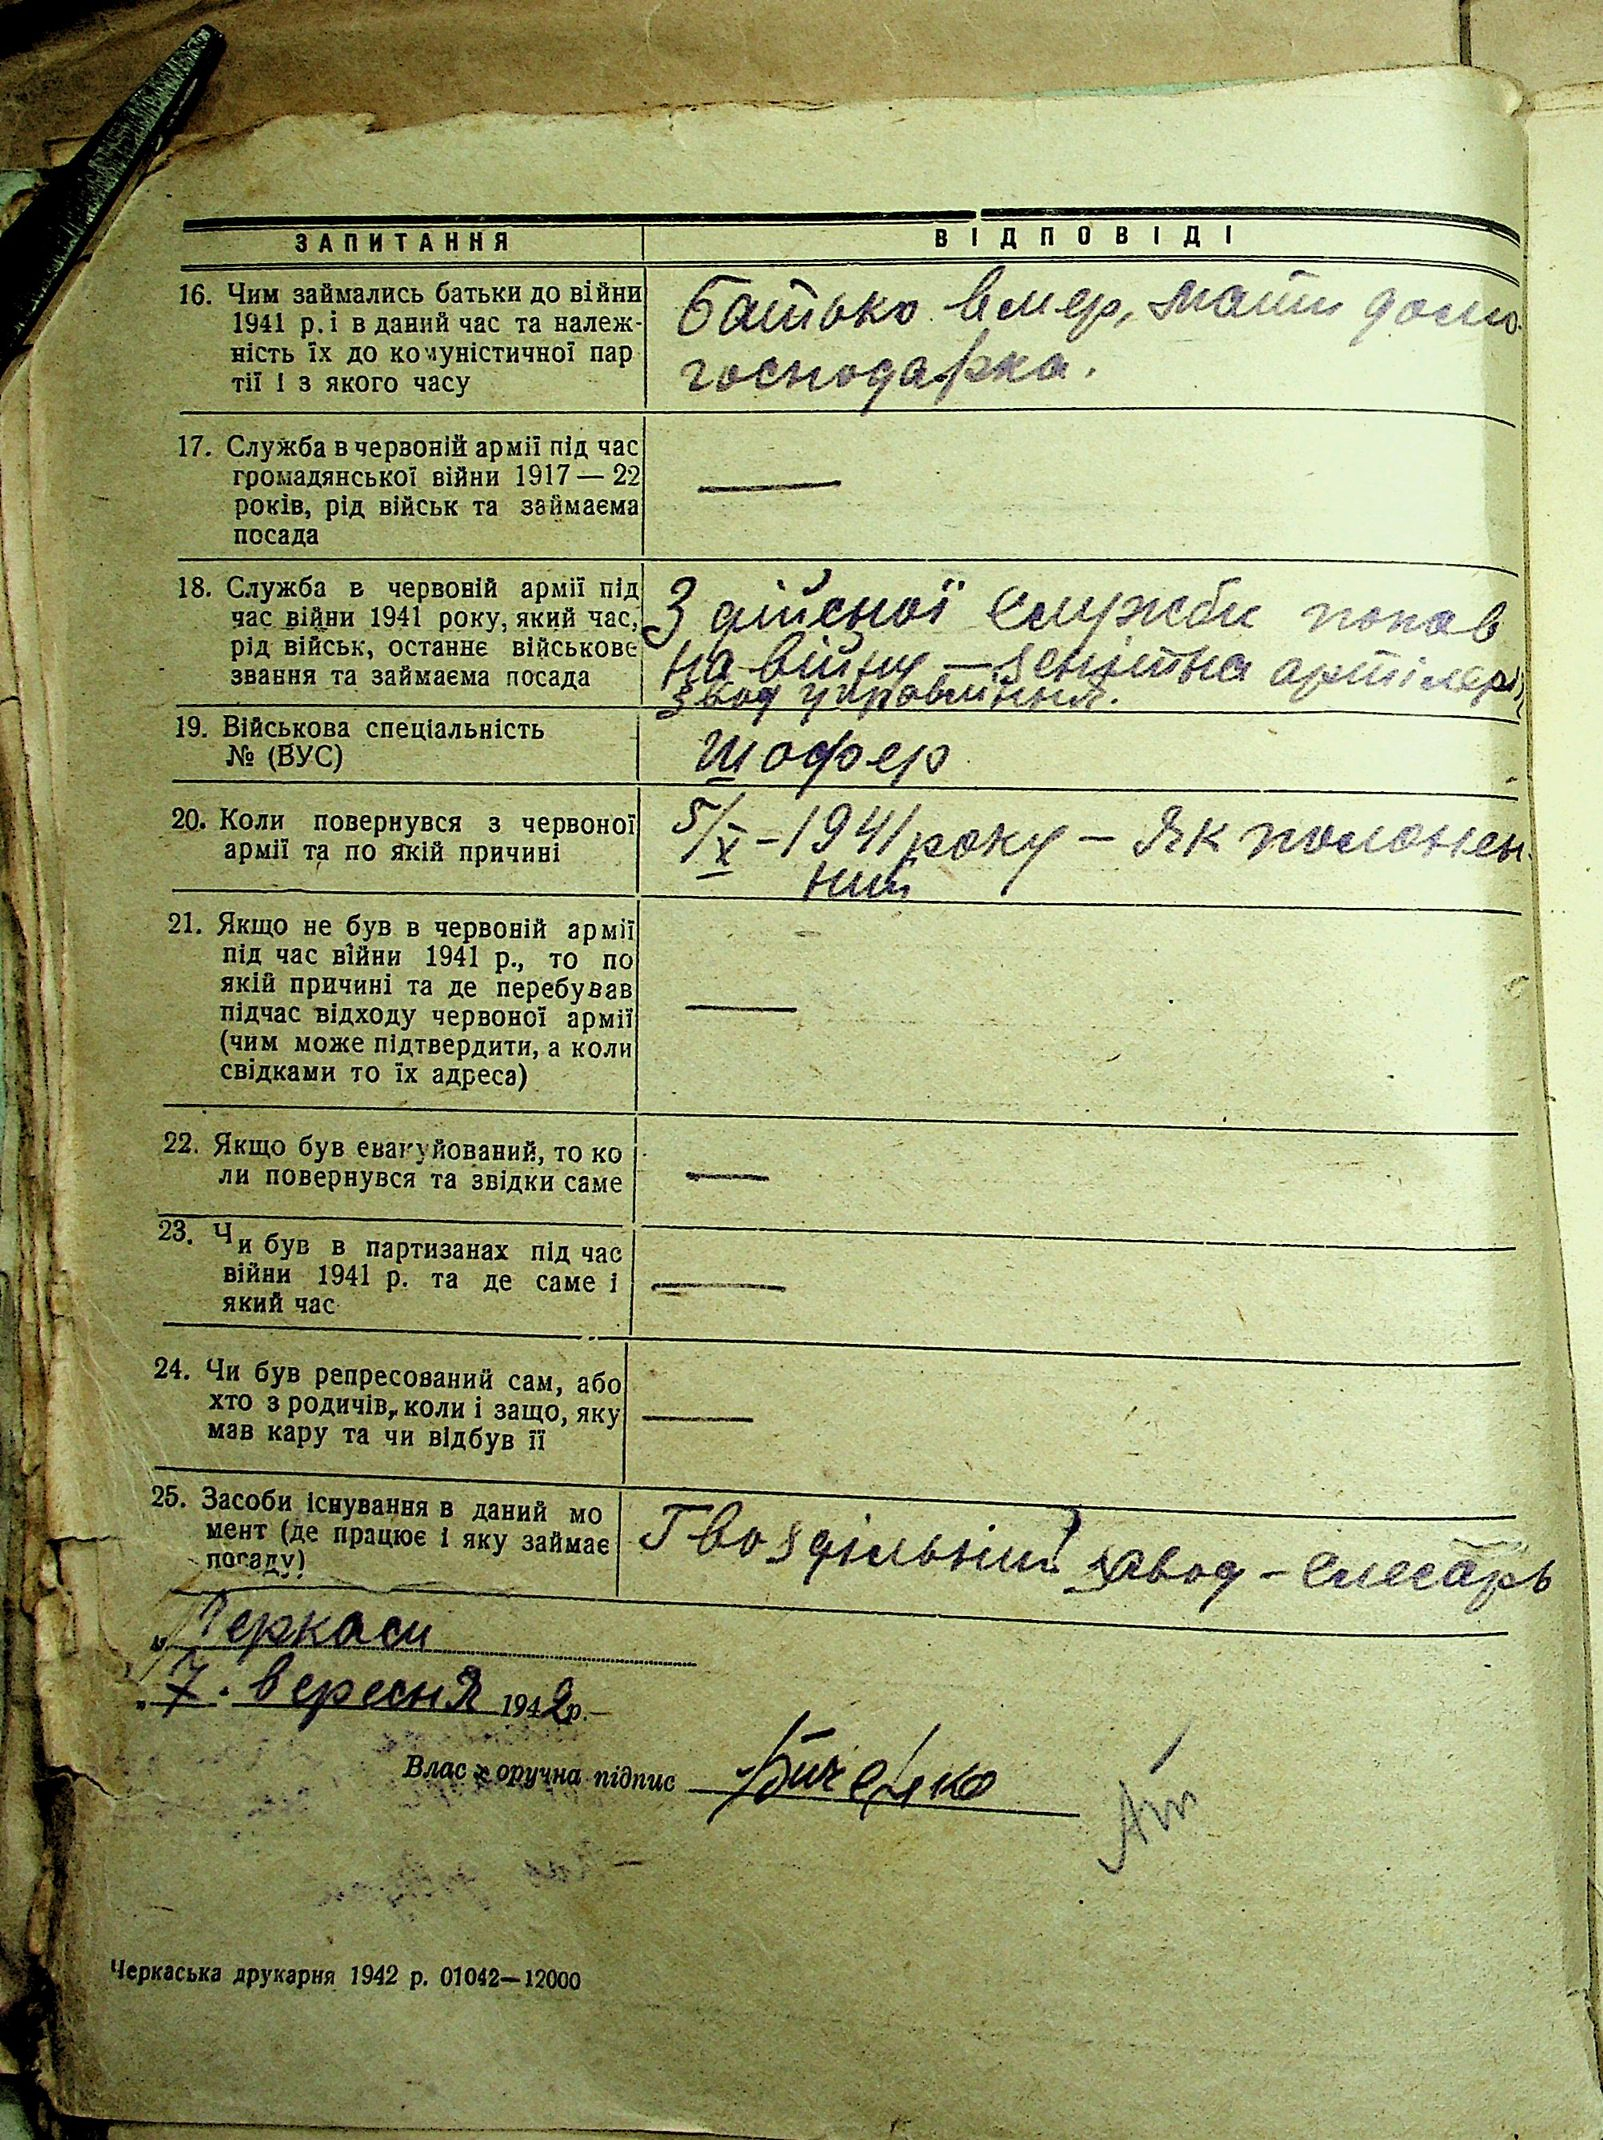 ЗАПИТАННЯ
ВІДПОВІДІ
16. Чим займались батьки до війни
1941 р. і в даний час та належ-
ність їх до комуністичної пар
тії і з якого часу
Батько вмер, мати домо-
господарка.
17. Служба в червоній армії під час
громадянської війни 1917 — 22
років, рід військ та займаєма
посада
—
18. Служба в червоній армії під
час війни 1941 року, який час,
рід військ, останнє військове
звання та займаєма посада
З дійсної служби попав
на війну — зенітна артілерія,
звод управління.
19. Військова спеціальність
№ (ВУС)
шофер
20. Коли повернувся з червоної
армії та по якій причині
5/X – 1941 року – Як полонен-
ний
21. Якщо не був в червоній армії
під час війни 1941 р., то по
якій причині та де перебував
підчас відходу червоної армії
(чим може підтвердити, а коли
свідками то їх адреса)
—
22. Якщо був евакуйований, то ко
ли повернувся та звідки саме
—
23. Чи був в партизанах під час
війни 1941 р. та де саме і
який час
—
24. Чи був репресований сам, або
хто з родичів, коли і защо, яку
мав кару та чи відбув її
—
25. Засоби існування в даний мо
мент (де працює і яку займає
посаду)
Гвоздільний завод – слесарь
м. Черкаси
„7. вересня 1942 р.–
Власноручна підпис
Черкаська друкарня 1942 р. 01042—12000